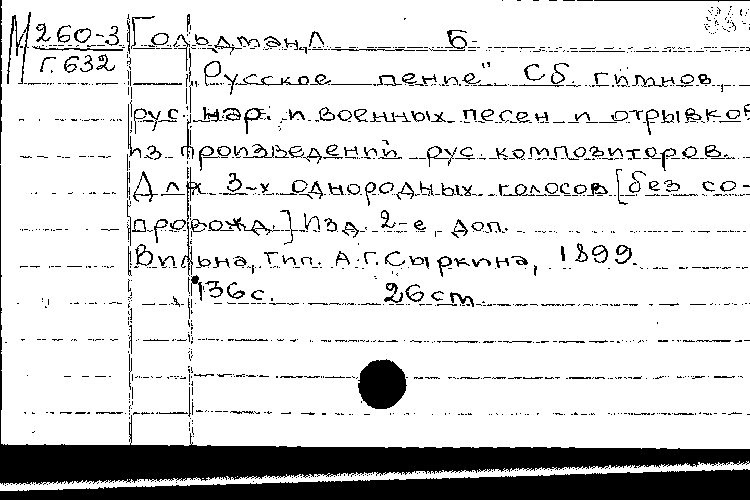 М 260-3 Гольдман, Л Б.
Г.632
„Русское пение" Сб. гимнов,
рус. нар. и военных песен и отрывков
из произведений рус. композиторов.
Для 3-х однородных голосов [без со-
провожд.] Изд. 2-е, доп.
Вильна, тип. А.Г. Сыркина, 1899.
136 с. 26 cm.